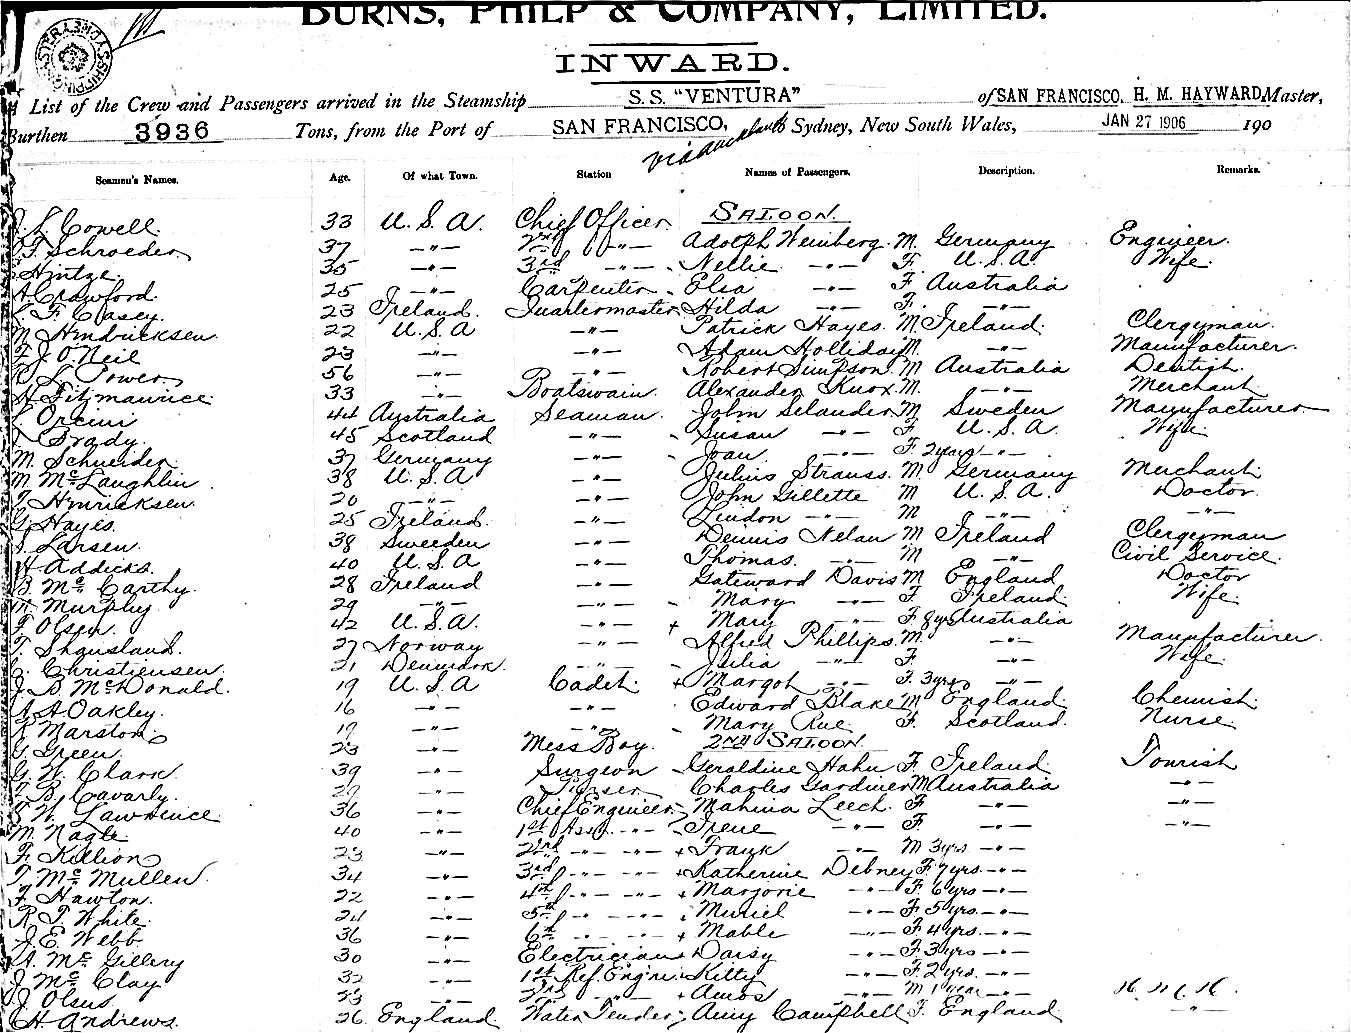 BURNS, PHILP & COMPANY, LIMITED.
INWARD.
List of the Crew and Passengers arrived in the Steamship S. S. "VENTURA" of SAN FRANCISCO, H. M. HAYWARD, Master,
Burthen 3936 Tons, from the Port of SAN FRANCISCO, via Sydney, New South Wales, JAN 27 1906 190
Seamen's Names. Age. Of what Town. Station Names of Passengers. Description. Remarks.
J. L. Cowell. 33 U. S. A. Chief Officer SALOON.
Schroeder 37 -"- 2nd -"- Adolph Weinberg. M. Germany Engineer.
Hintze. 35 -"- 3rd -"- Nellie -"- F. U. S. A. Wife.
A. Crawford. 25 -"- Carpenter Elsa -"- F Australia
F Casey. 23 Ireland. Quartermaster Hilda -"- F. -"-
M. Hindricksen 22 U. S. A -"- Patrick Hayes. M Ireland. Clergyman.
J. O'Neil 23 -"- -"- Adam Holliday M. -"- Manufacturer.
L. Power 56 -"- -"- Robert Simpson. M Australia Dentist.
Fitzmaurice 33 -"- Boatswain. Alexander Knox M. -"- Merchant
Orcini 44 Australia Seaman. John Selander M Sweden Manufacturer
Brady. 45 Scotland -"- Susan -"- F U. S. A. Wife.
M. Schneider 37 Germany -"- Joan. -"- F. 2 years -"-
M McLaughlin 38 U. S. A -"- Julius Strauss. M. Germany Merchant.
Hinricksen 20 -"- -"- John Gillette M U. S. A. Doctor.
G. Hayes. 25 Ireland. -"- Lindon -"- M -"- -"-
Larsen. 38 Sweeden -"- Dennis Nelan M Ireland Clergyman
H Addicks. 40 U. S. A -"- Thomas. -"- M -"- Civil Service.
B. McCarthy. 28 Ireland -"- Gateward Davis M England Doctor
Murphy. 29 -"- -"- Mary -"- F. Ireland. Wife.
F Olsen. 42 U. S. A. -"- + Mary -"- F 8yrs Australia
T. 27 Norway -"- Alfred Phillips. M. -"- Manufacturer.
Christiensen. 21 Denmark. -"- Julia -"- F. -"- Wife.
J. D. McDonald. 19 U. S. A Cadet. + Margot -"- F. 3yrs -"-
A Oakley. 16 -"- -"- Edward Blake M England Chemist.
Marston 19 -"- -"- Mary Rue. F. Scotland. Nurse.
G. Green. 23 -"- Mess Boy. 2ND SALOON.
G. W. Clark. 39 -"- Surgeon Geraldine Hahn F. Ireland. Tourist
B. Cavarly. 29 -"- Purser Charles Gardiner M Australia -"-
W. Lawrence 36 -"- Chief Engineer Mahina Leech. F -"- -"-
M. Nagle. 40 -"- 1st Asst -"- Irene -"- F. -"- -"-
F. Killion 23 -"- 2nd -"- -"- + Frank -"- M 3yrs -"-
T McMullen. 34 -"- 3rd -"- -"- + Katherine Debney F 7yrs. -"-
F. Hawton. 22 -"- 4th -"- -"- + Marjorie -"- F. 6yrs -"-
R. T. White. 24 -"- 5th -"- -"- Muriel -"- F. 5yrs. -"-
J. E. Webb. 36 -"- 6th -"- -"- + Mable -"- F. 4yrs. -"-
A. McGillery 30 -"- Electrician Daisy -"- F. 3yrs -"-
J. McClay 32 -"- 1st Ref. Engnr. Kitty -"- F. 2yrs. -"-
J Olsus 23 -"- 2nd -"- + Amos -"- M 1 year -"-
H. Andrews. 26. England Water Tender Amy Campbell F. England -"-